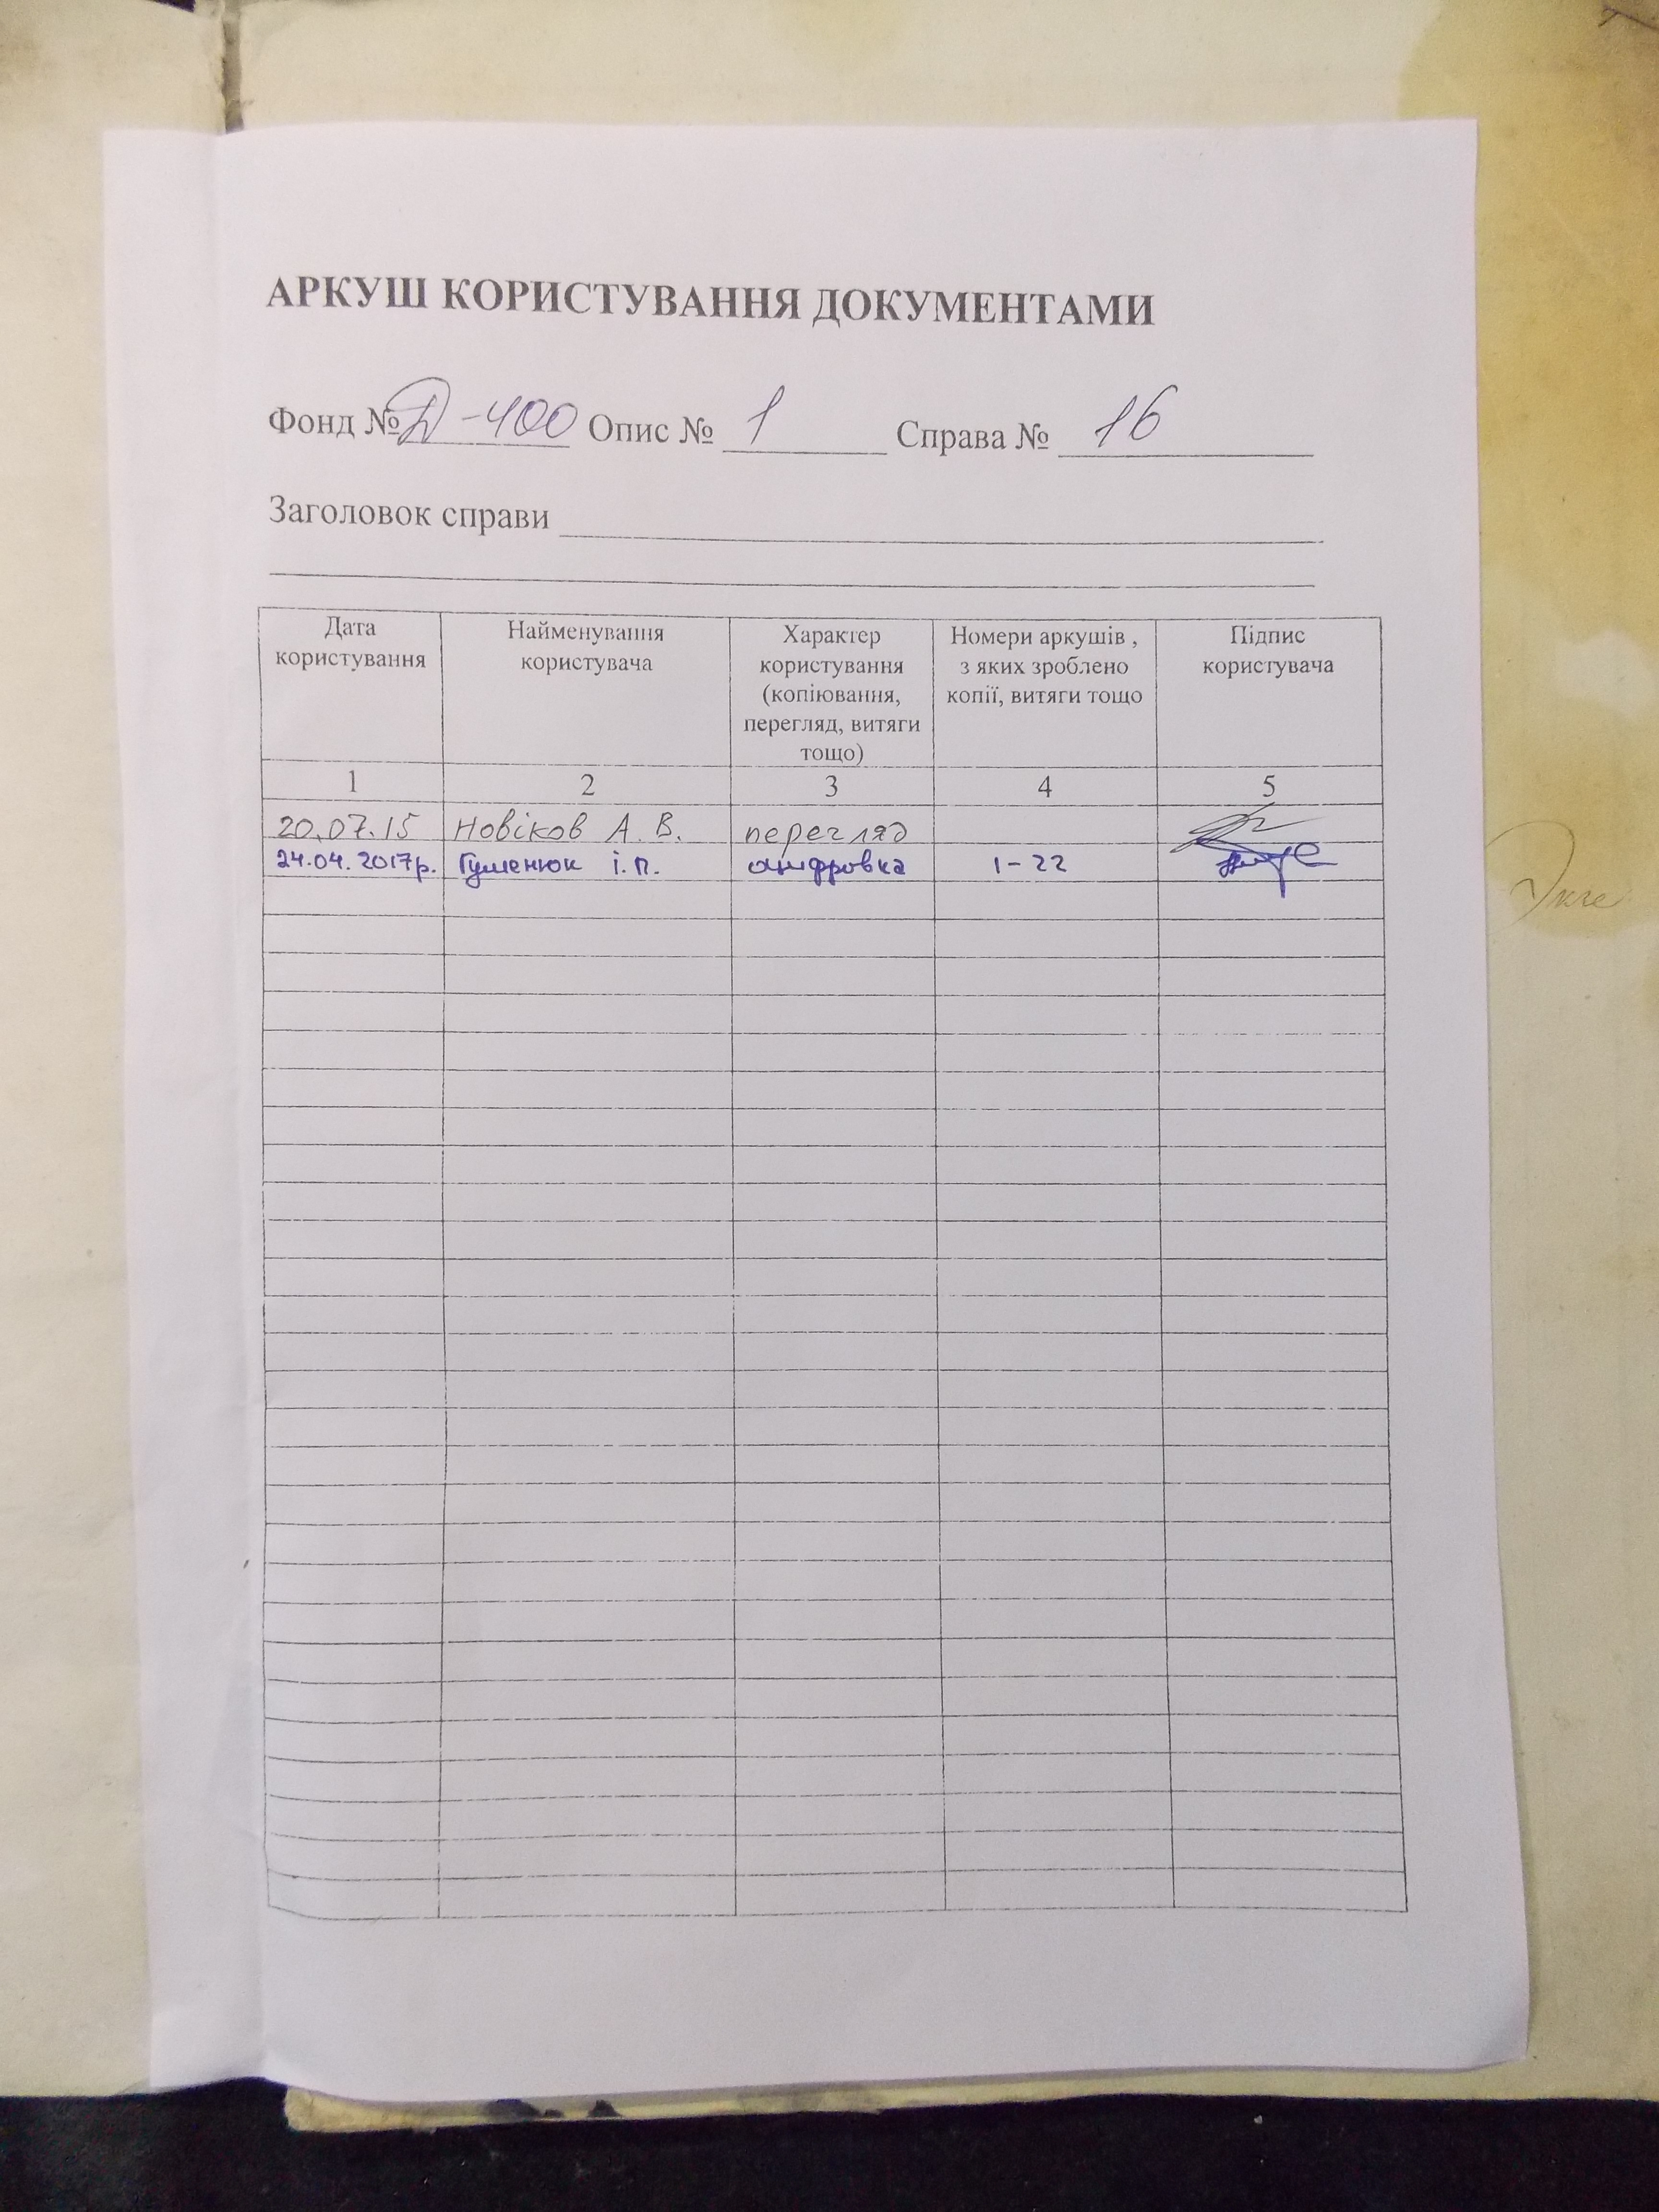 АРКУШ КОРИСТУВАННЯ ДОКУМЕНТАМИ
Фонд № Д-400 Опис № 1 Справа № 16
Заголовок справи
Дата користування Найменування користувача Характер користування (копіювання, перегляд, витяги тощо) Номери аркушів , з яких зроблено копії, витяги тощо Підпис користувача
1 2 3 4 5
20.07.15 Новіков А. В. перегляд
24.04.2017р. Гуменюк І.П. оцифровка 1-22